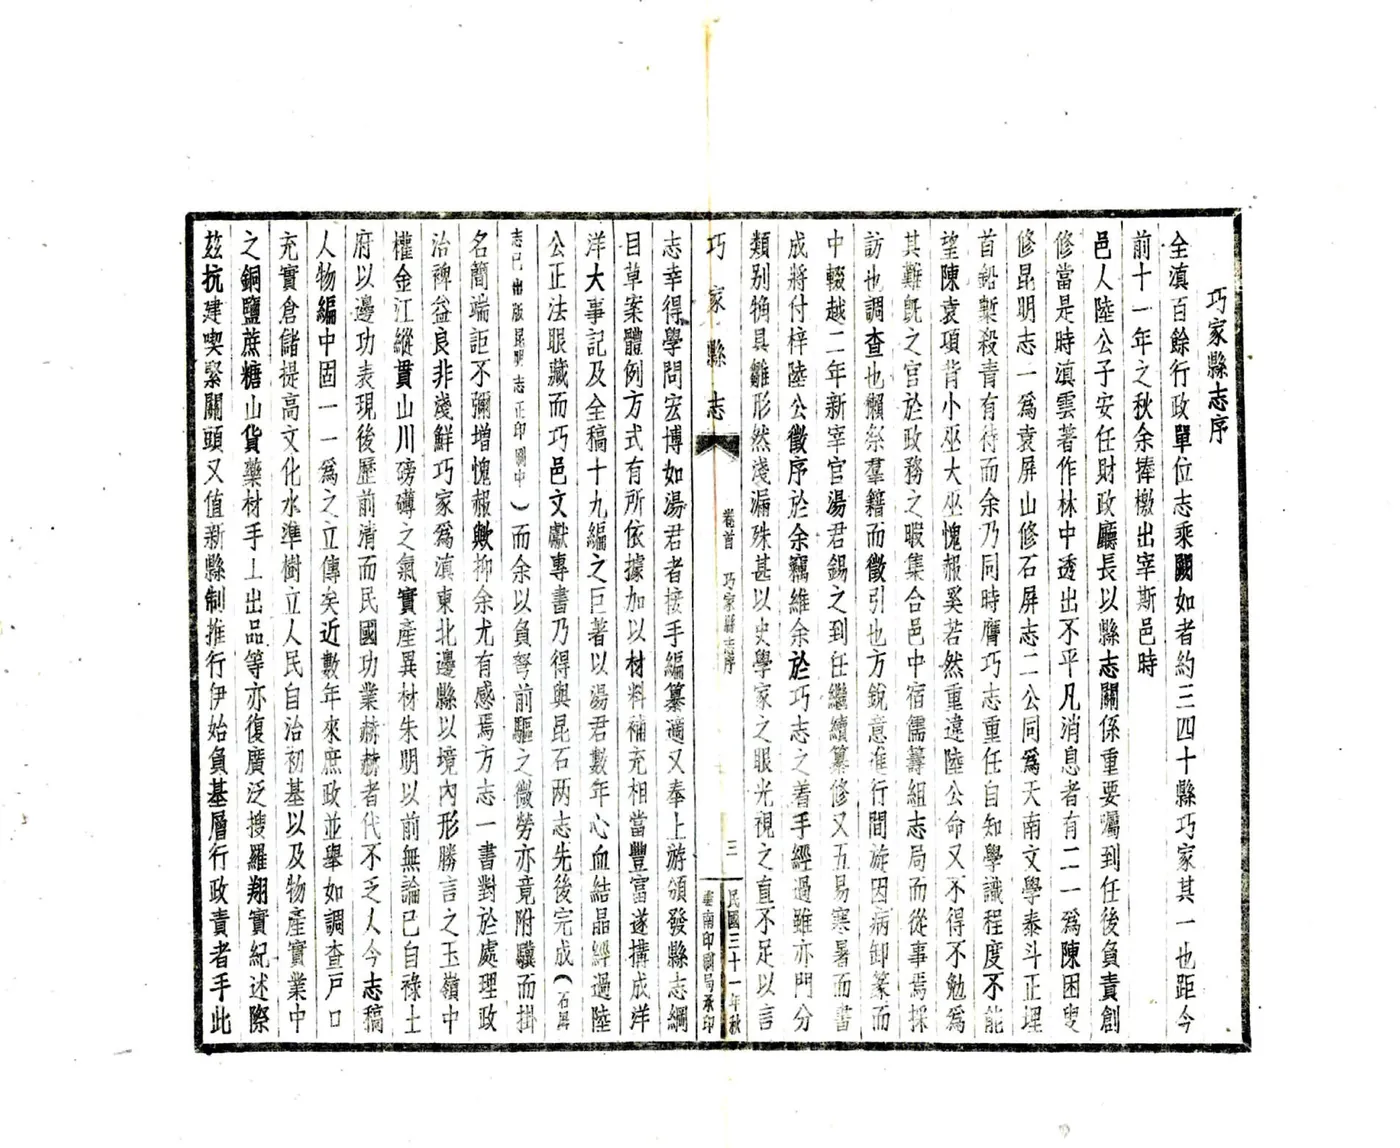 巧家縣志序
全滇百餘行政單位志乘闕如者約三四十縣巧家其一也距今
前十一年之秋余捧檄出宰斯邑時
邑人陸公子安任財政廳長以縣志關係重要囑到任後負責創
修當是時滇雲著作林中透出不平凡消息者有二一爲陳困叟
修昆明志一爲袁屏山修石屏志二公同爲天南文學泰斗正埋
首鉛槧殺青有待而余乃同時膺巧志重任自知學識程度不能
望陳袁項背小巫大巫愧赧奚若然重違陸公命又不得不勉爲
其難旣之官於政務之暇集合邑中宿儒籌組志局而從事焉採
訪也調查也獺祭羣籍而徵引也方銳意進行間旋因病卸篆而
中輟越二年新宰官湯君錫之到任繼續纂修又五易寒暑而書
成將付梓陸公徵序於余竊維余於巧志之着手經過雖亦門分
類别犄具雛形然淺漏殊甚以史學家之眼光視之直不足以言
巧家縣志
卷首 巧家縣志序
三
民國三十一年秋
雲南印刷局承印
志幸得學問宏博如湯君者接手編纂適又奉上游頒發縣志綱
目草案體例方式有所依據加以材料補充相當豐富遂搆成洋
洋大事記及全稿十九編之巨著以湯君數年心血結晶經過陸
公正法眼藏而巧邑文獻專書乃得與昆石兩志先後完成（石屏
志已出版昆明志正印刷中）而余以負弩前驅之微勞亦竟附驥而掛
名簡端詎不彌增愧赧歟抑余尤有感焉方志一書對於處理政
治裨益良非淺鮮巧家爲滇東北邊縣以境內形勝言之玉嶺中
權金江縱貫山川磅礴之氣實產異材朱明以前無論已自祿土
府以邊功表現後歷前清而民國功業赫赫者代不乏人今志稿
人物編中固一一爲之立傳矣近數年來庶政並舉如調查戶口
充實倉儲提高文化水準樹立人民自治初基以及物產實業中
之銅鹽蔗糖山貨藥材手工出品等亦復廣泛搜羅翔實紀述際
茲抗建喫緊關頭又值新縣制推行伊始負基層行政責者手此